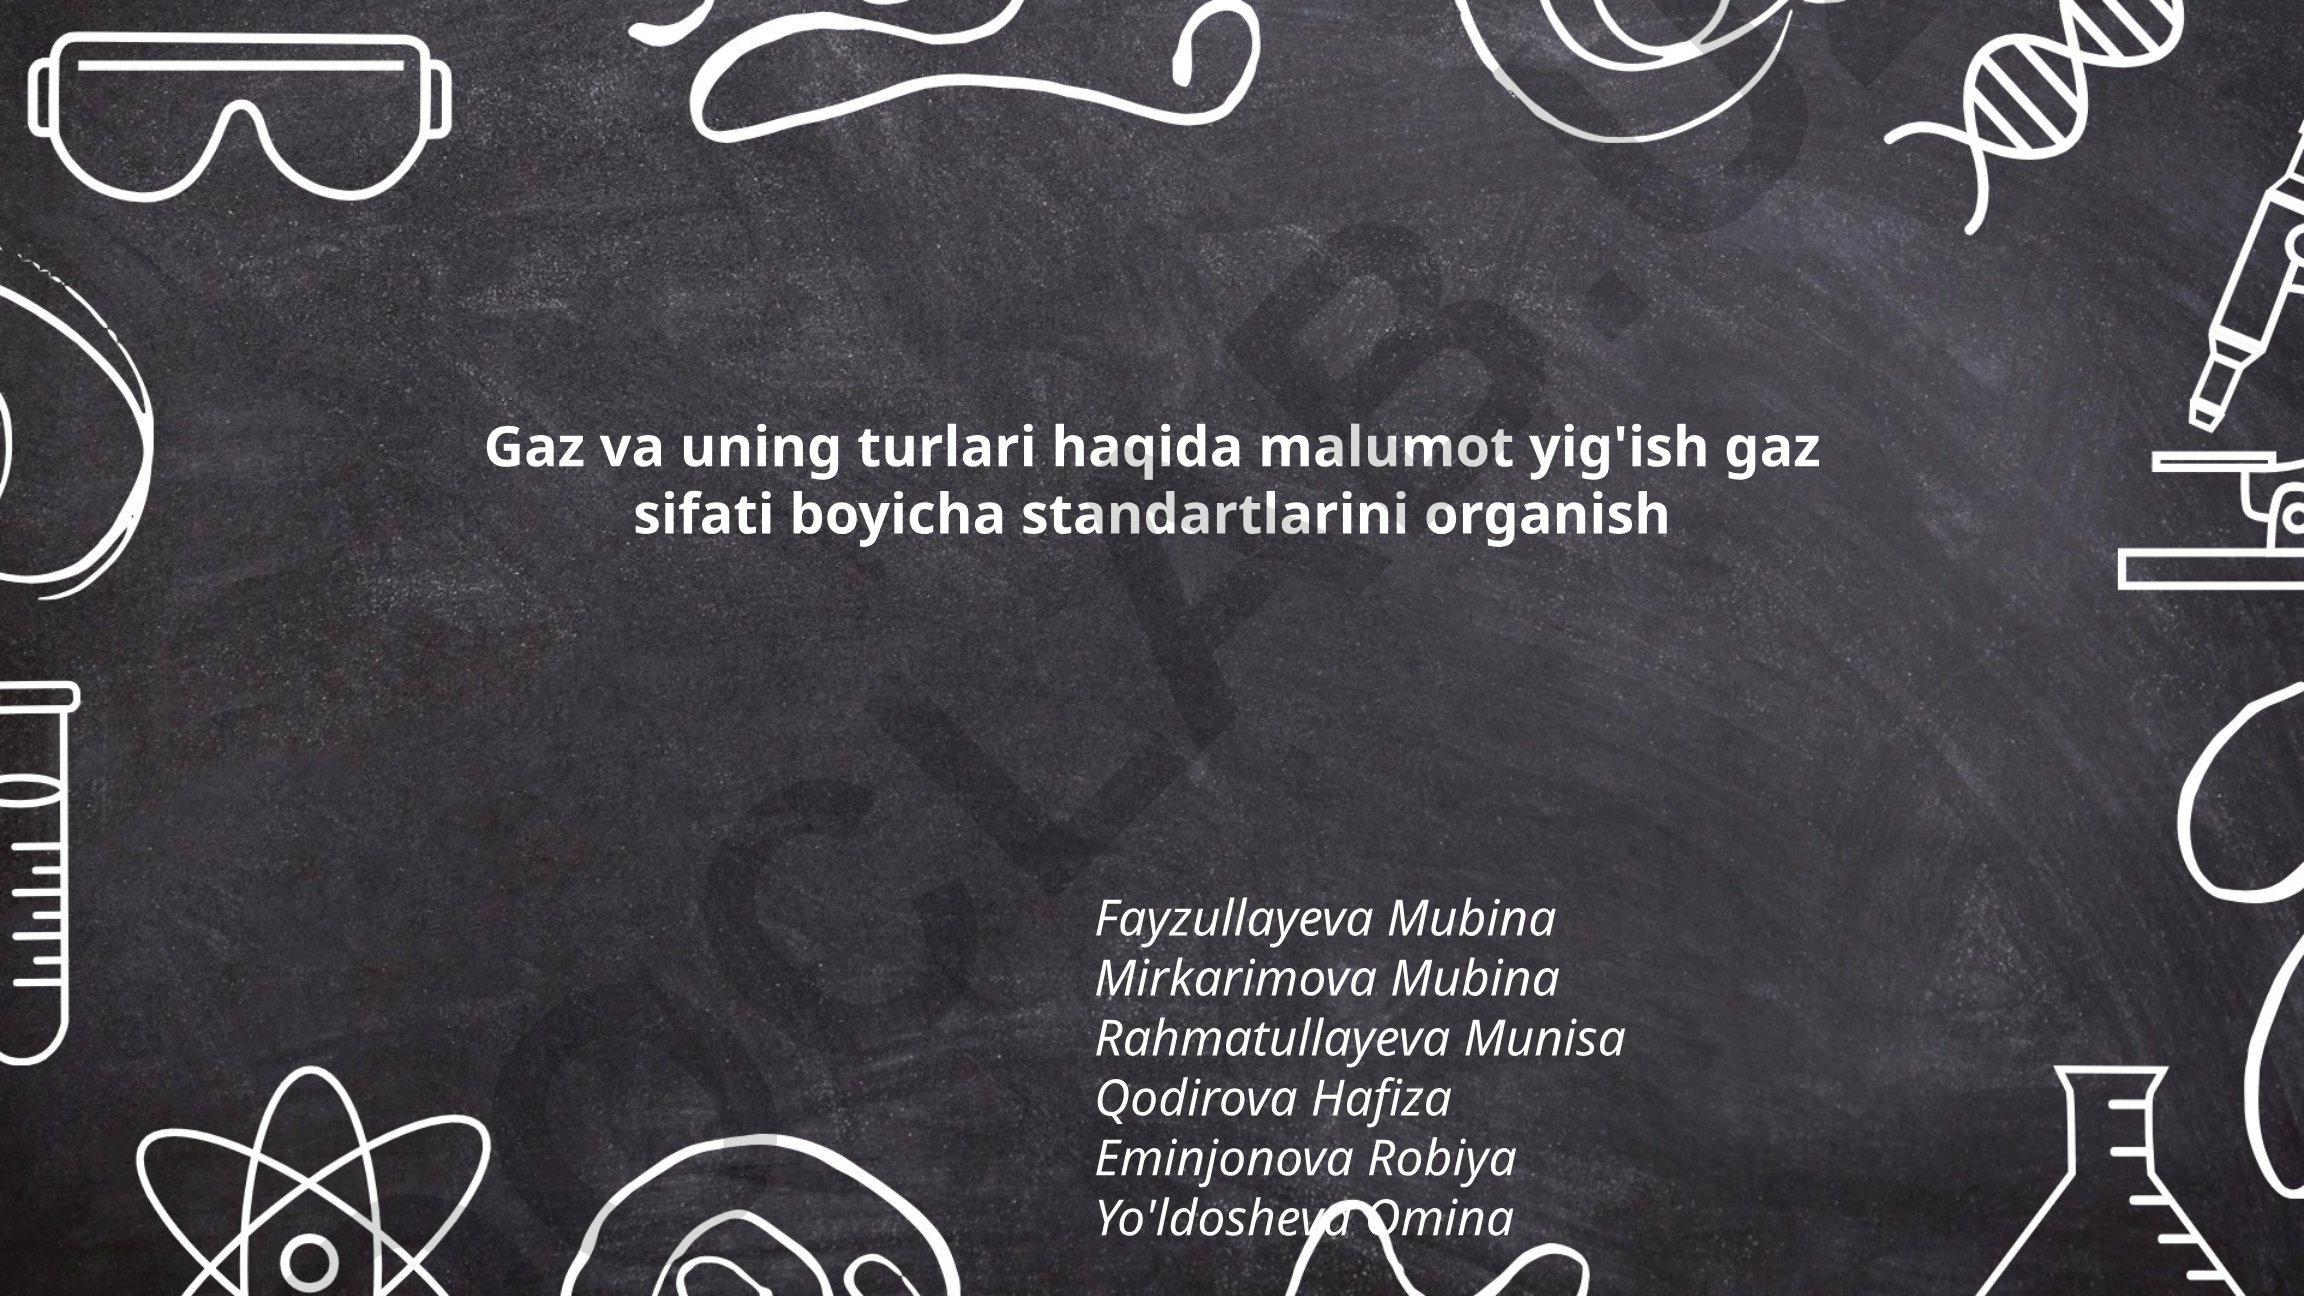 Gaz va uning turlari haqida malumot yig'ish gaz
sifati boyicha standartlarini organish
Fayzullayeva Mubina
Mirkarimova Mubina
Rahmatullayeva Munisa
Qodirova Hafiza
Eminjonova Robiya
Yo'ldosheva Omina